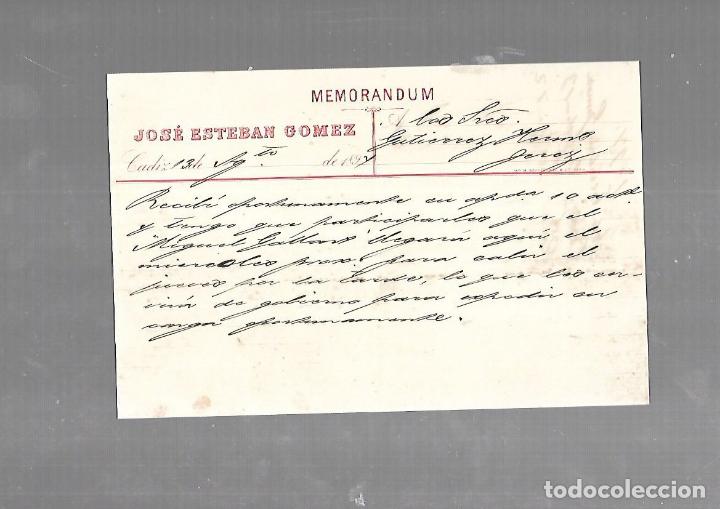 MEMORANDUM
JOSÉ ESTEBAN GOMEZ
Cadiz 13 de Agto de 189
A los Sres.
Gutierrez Hermos
Jerez
Recibí oportunamente su apda. 10 actl.
y tengo que participarles que el
"Miguel Gallart" llegará aquí el
miercoles prox. para salir el
jueves por la tarde, lo que les ser-
virá de gobierno para expedir su
carga oportunamente.
todocoleccion.net